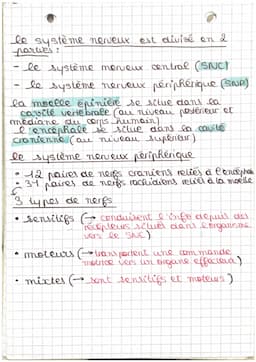 le système nerveux est divisé en 2
parties :
- le système nerveux central (SNC)
- le système nerveux périphérique (SNP)
la moelle épinière se situe dans la
cavité vertébrale (au niveau postérieur et
médiane du corps humain)
l'encéphale se situe dans la cavité
cranienne (au niveau supérieur)
le système nerveux périphérique
• 12 paires de nerfs craniens reliés à l'encéphale
• 31 paires de nerfs rachidiens relié à la moelle
3 types de nerfs
• sensitifs (→ conduisent l'info depuis des
récepteurs situés dans l'organisme
vers le SNC)
• moteurs (→ transportent une commande
motrice vers un organe effecteur)
• mixtes (→ sont sensitifs et moteurs)